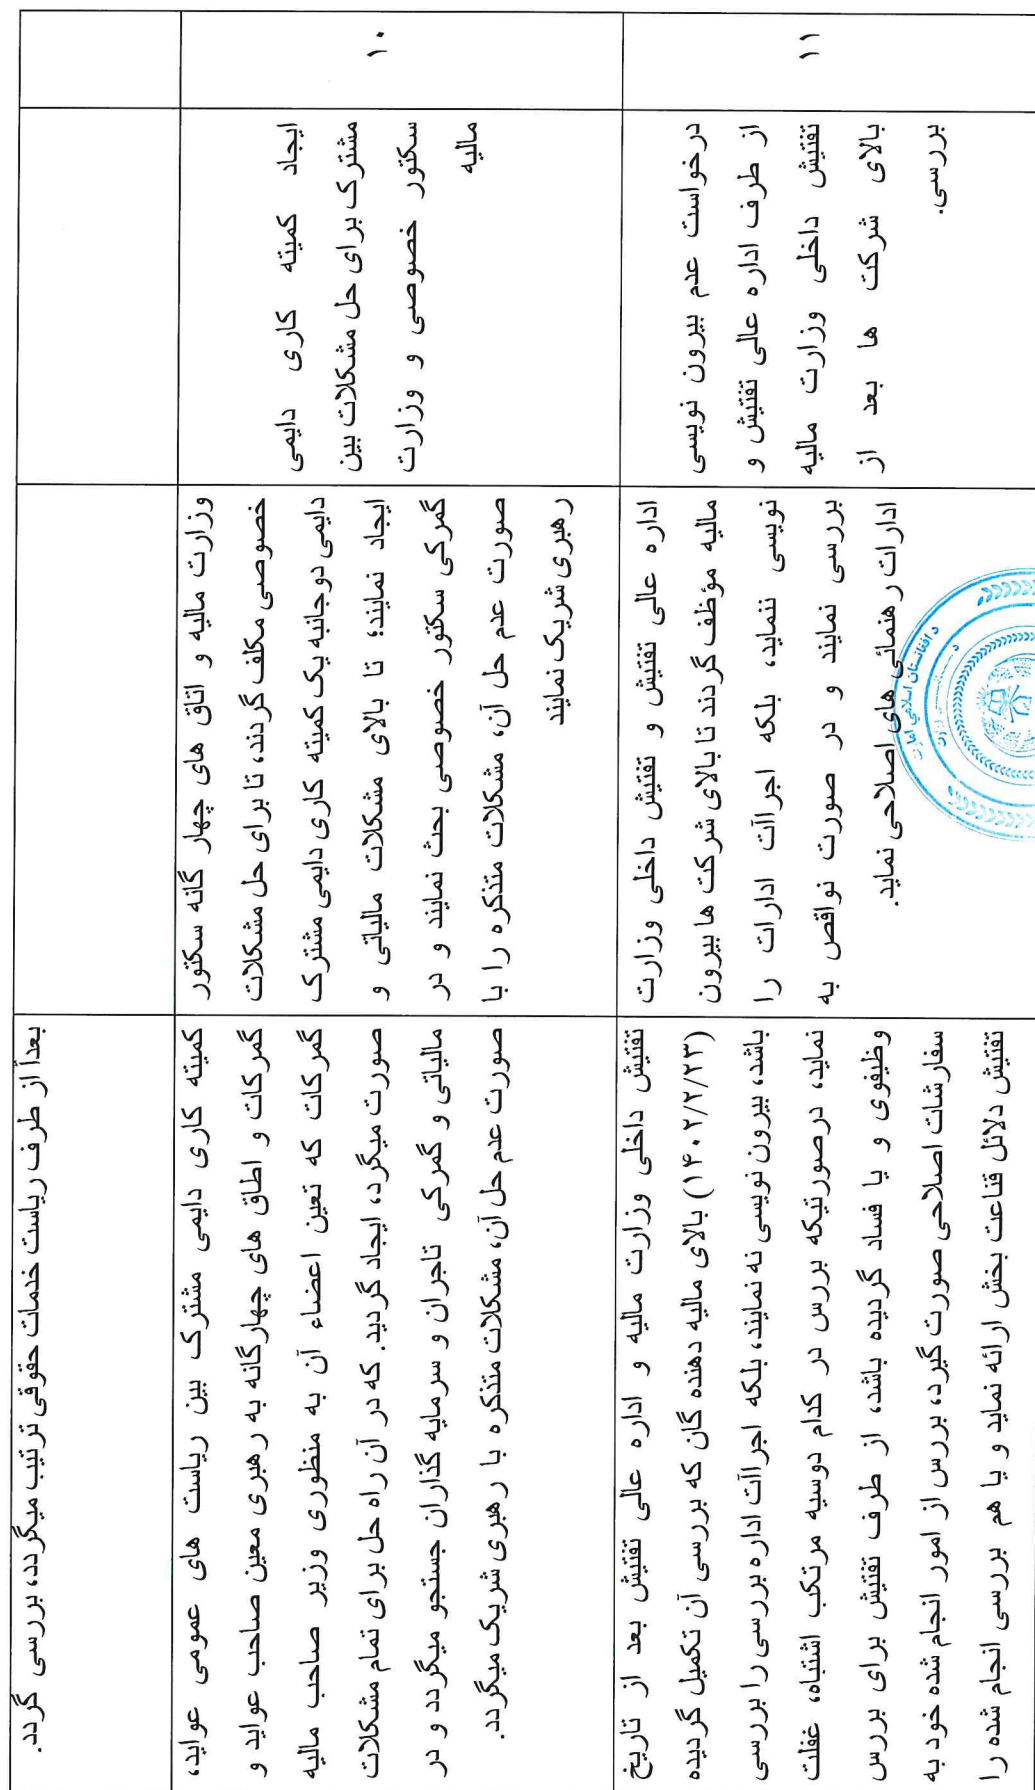 بعداً از طرف ریاست خدمات حقوقی ترتیب میگردد، بررسی گردد.
۱۰
ایجاد کمیته کاری دایمی
مشترک برای حل مشکلات بین
سکتور خصوصی و وزارت
مالیه
وزارت مالیه و اتاق های چهار گانه سکتور
خصوصی مکلف گردند، تا برای حل مشکلات
دایمی دوجانبه یک کمیته کاری دایمی مشترک
ایجاد نمایند؛ تا بالای مشکلات مالیاتی و
گمرکی سکتور خصوصی بحث نمایند و در
صورت عدم حل آن، مشکلات متذکره را با
رهبری شریک نمایند
کمیته کاری دایمی مشترک بین ریاست های عمومی عواید،
گمرکات و اطاق های چهارگانه به رهبری معین صاحب عواید و
گمرکات که تعین اعضاء آن به منظوری وزیر صاحب مالیه
صورت میگرد، ایجاد گردید. که در آن راه حل برای تمام مشکلات
مالیاتی و گمرکی تاجران و سرمایه گذاران جستجو میگردد و در
صورت عدم حل آن، مشکلات متذکره با رهبری شریک میگردد.
۱۱
درخواست عدم بیرون نویسی
از طرف اداره عالی تفتیش و
تفتیش داخلی وزارت مالیه
بالای شرکت ها بعد از
بررسی.
اداره عالی تفتیش و تفتیش داخلی وزارت
مالیه مؤظف گردند تا بالای شرکت ها بیرون
نویسی ننماید، بلکه اجراآت ادارات را
بررسی نمایند و در صورت نواقص به
ادارات رهنمائی های اصلاحی نماید.
تفتیش داخلی وزارت مالیه و اداره عالی تفتیش بعد از تاریخ
(۱۴۰۲/۲/۲۳) بالای مالیه دهنده گان که بررسی آن تکمیل گردیده
باشد، بیرون نویسی نه نمایند، بلکه اجراآت اداره بررسی را بررسی
نماید، درصورتیکه بررس در کدام دوسیه مرتکب اشتباه، غفلت
وظیفوی و یا فساد گردیده باشد، از طرف تفتیش برای بررس
سفارشات اصلاحی صورت گیرد، بررس از امور انجام شده خود به
تفتیش دلائل قناعت بخش ارائه نماید و یا هم بررسی انجام شده را
د افغانستان اسلامی امارت